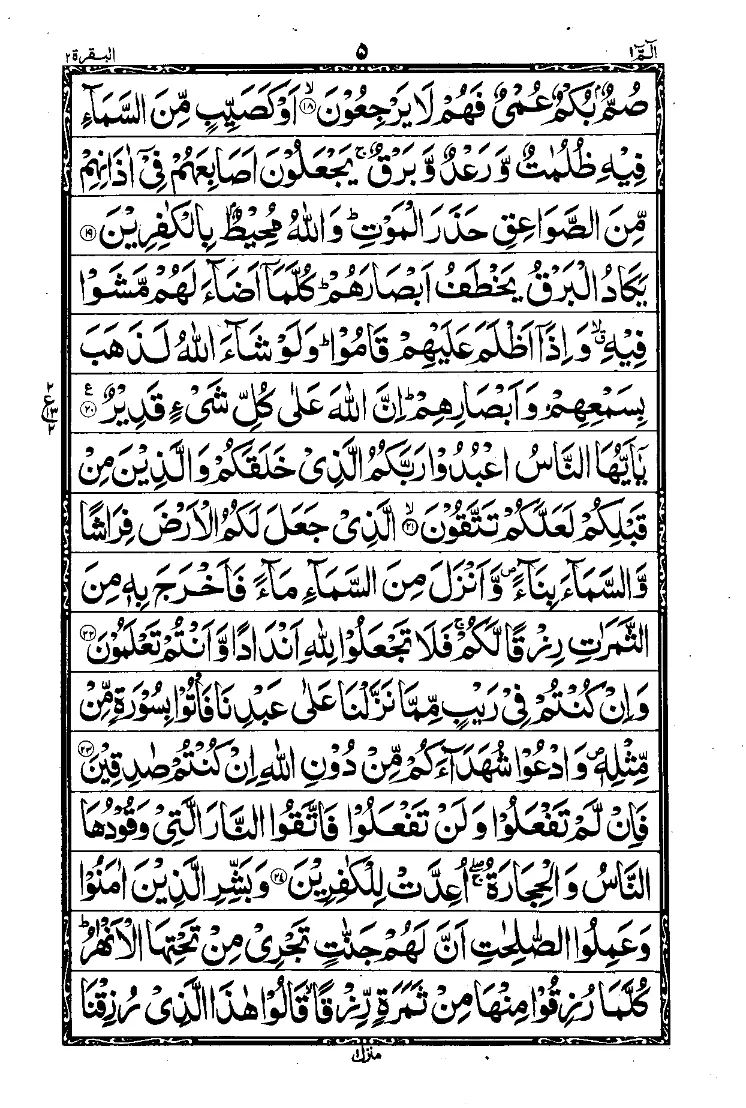 الٓمّٓ ۱ ۵ البقرة ۲
صُمٌّۢ بُكْمٌ عُمْیٌ فَهُمْ لَا یَرْجِعُوْنَ ۙ‏﴿۱۸﴾ اَوْ كَصَیِّبٍ مِّنَ السَّمَآءِ
فِیْهِ ظُلُمٰتٌ وَّ رَعْدٌ وَّ بَرْقٌ ۚ یَجْعَلُوْنَ اَصَابِعَهُمْ فِیْۤ اٰذَانِهِمْ
مِّنَ الصَّوَاعِقِ حَذَرَ الْمَوْتِ ؕ وَ اللّٰهُ مُحِیْطٌۢ بِالْكٰفِرِیْنَ ﴿۱۹﴾
یَكَادُ الْبَرْقُ یَخْطَفُ اَبْصَارَهُمْ ؕ كُلَّمَاۤ اَضَآءَ لَهُمْ مَّشَوْا
فِیْهِ ۙۗ وَ اِذَاۤ اَظْلَمَ عَلَیْهِمْ قَامُوْا ؕ وَ لَوْ شَآءَ اللّٰهُ لَذَهَبَ
بِسَمْعِهِمْ وَ اَبْصَارِهِمْ ؕ اِنَّ اللّٰهَ عَلٰی كُلِّ شَیْءٍ قَدِیْرٌ ﴿۲۰﴾ ع
۲ ع ۱۳ ۲
یٰۤاَیُّهَا النَّاسُ اعْبُدُوْا رَبَّكُمُ الَّذِیْ خَلَقَكُمْ وَ الَّذِیْنَ مِنْ
قَبْلِكُمْ لَعَلَّكُمْ تَتَّقُوْنَ ۙ﴿۲۱﴾ الَّذِیْ جَعَلَ لَكُمُ الْاَرْضَ فِرَاشًا
وَّ السَّمَآءَ بِنَآءً ۪ وَّ اَنْزَلَ مِنَ السَّمَآءِ مَآءً فَاَخْرَجَ بِهٖ مِنَ
الثَّمَرٰتِ رِزْقًا لَّكُمْ ۚ فَلَا تَجْعَلُوْا لِلّٰهِ اَنْدَادًا وَّ اَنْتُمْ تَعْلَمُوْنَ ﴿۲۲﴾
وَ اِنْ كُنْتُمْ فِیْ رَیْبٍ مِّمَّا نَزَّلْنَا عَلٰی عَبْدِنَا فَاْتُوْا بِسُوْرَةٍ مِّنْ
مِّثْلِهٖ ۪ وَ ادْعُوْا شُهَدَآءَكُمْ مِّنْ دُوْنِ اللّٰهِ اِنْ كُنْتُمْ صٰدِقِیْنَ ﴿۲۳﴾
فَاِنْ لَّمْ تَفْعَلُوْا وَ لَنْ تَفْعَلُوْا فَاتَّقُوا النَّارَ الَّتِیْ وَقُوْدُهَا
النَّاسُ وَ الْحِجَارَةُ ۖۚ اُعِدَّتْ لِلْكٰفِرِیْنَ ﴿۲۴﴾ وَ بَشِّرِ الَّذِیْنَ اٰمَنُوْا
وَ عَمِلُوا الصّٰلِحٰتِ اَنَّ لَهُمْ جَنّٰتٍ تَجْرِیْ مِنْ تَحْتِهَا الْاَنْهٰرُ ؕ
كُلَّمَا رُزِقُوْا مِنْهَا مِنْ ثَمَرَةٍ رِّزْقًا ۙ قَالُوْا هٰذَا الَّذِیْ رُزِقْنَا
منزل ۱